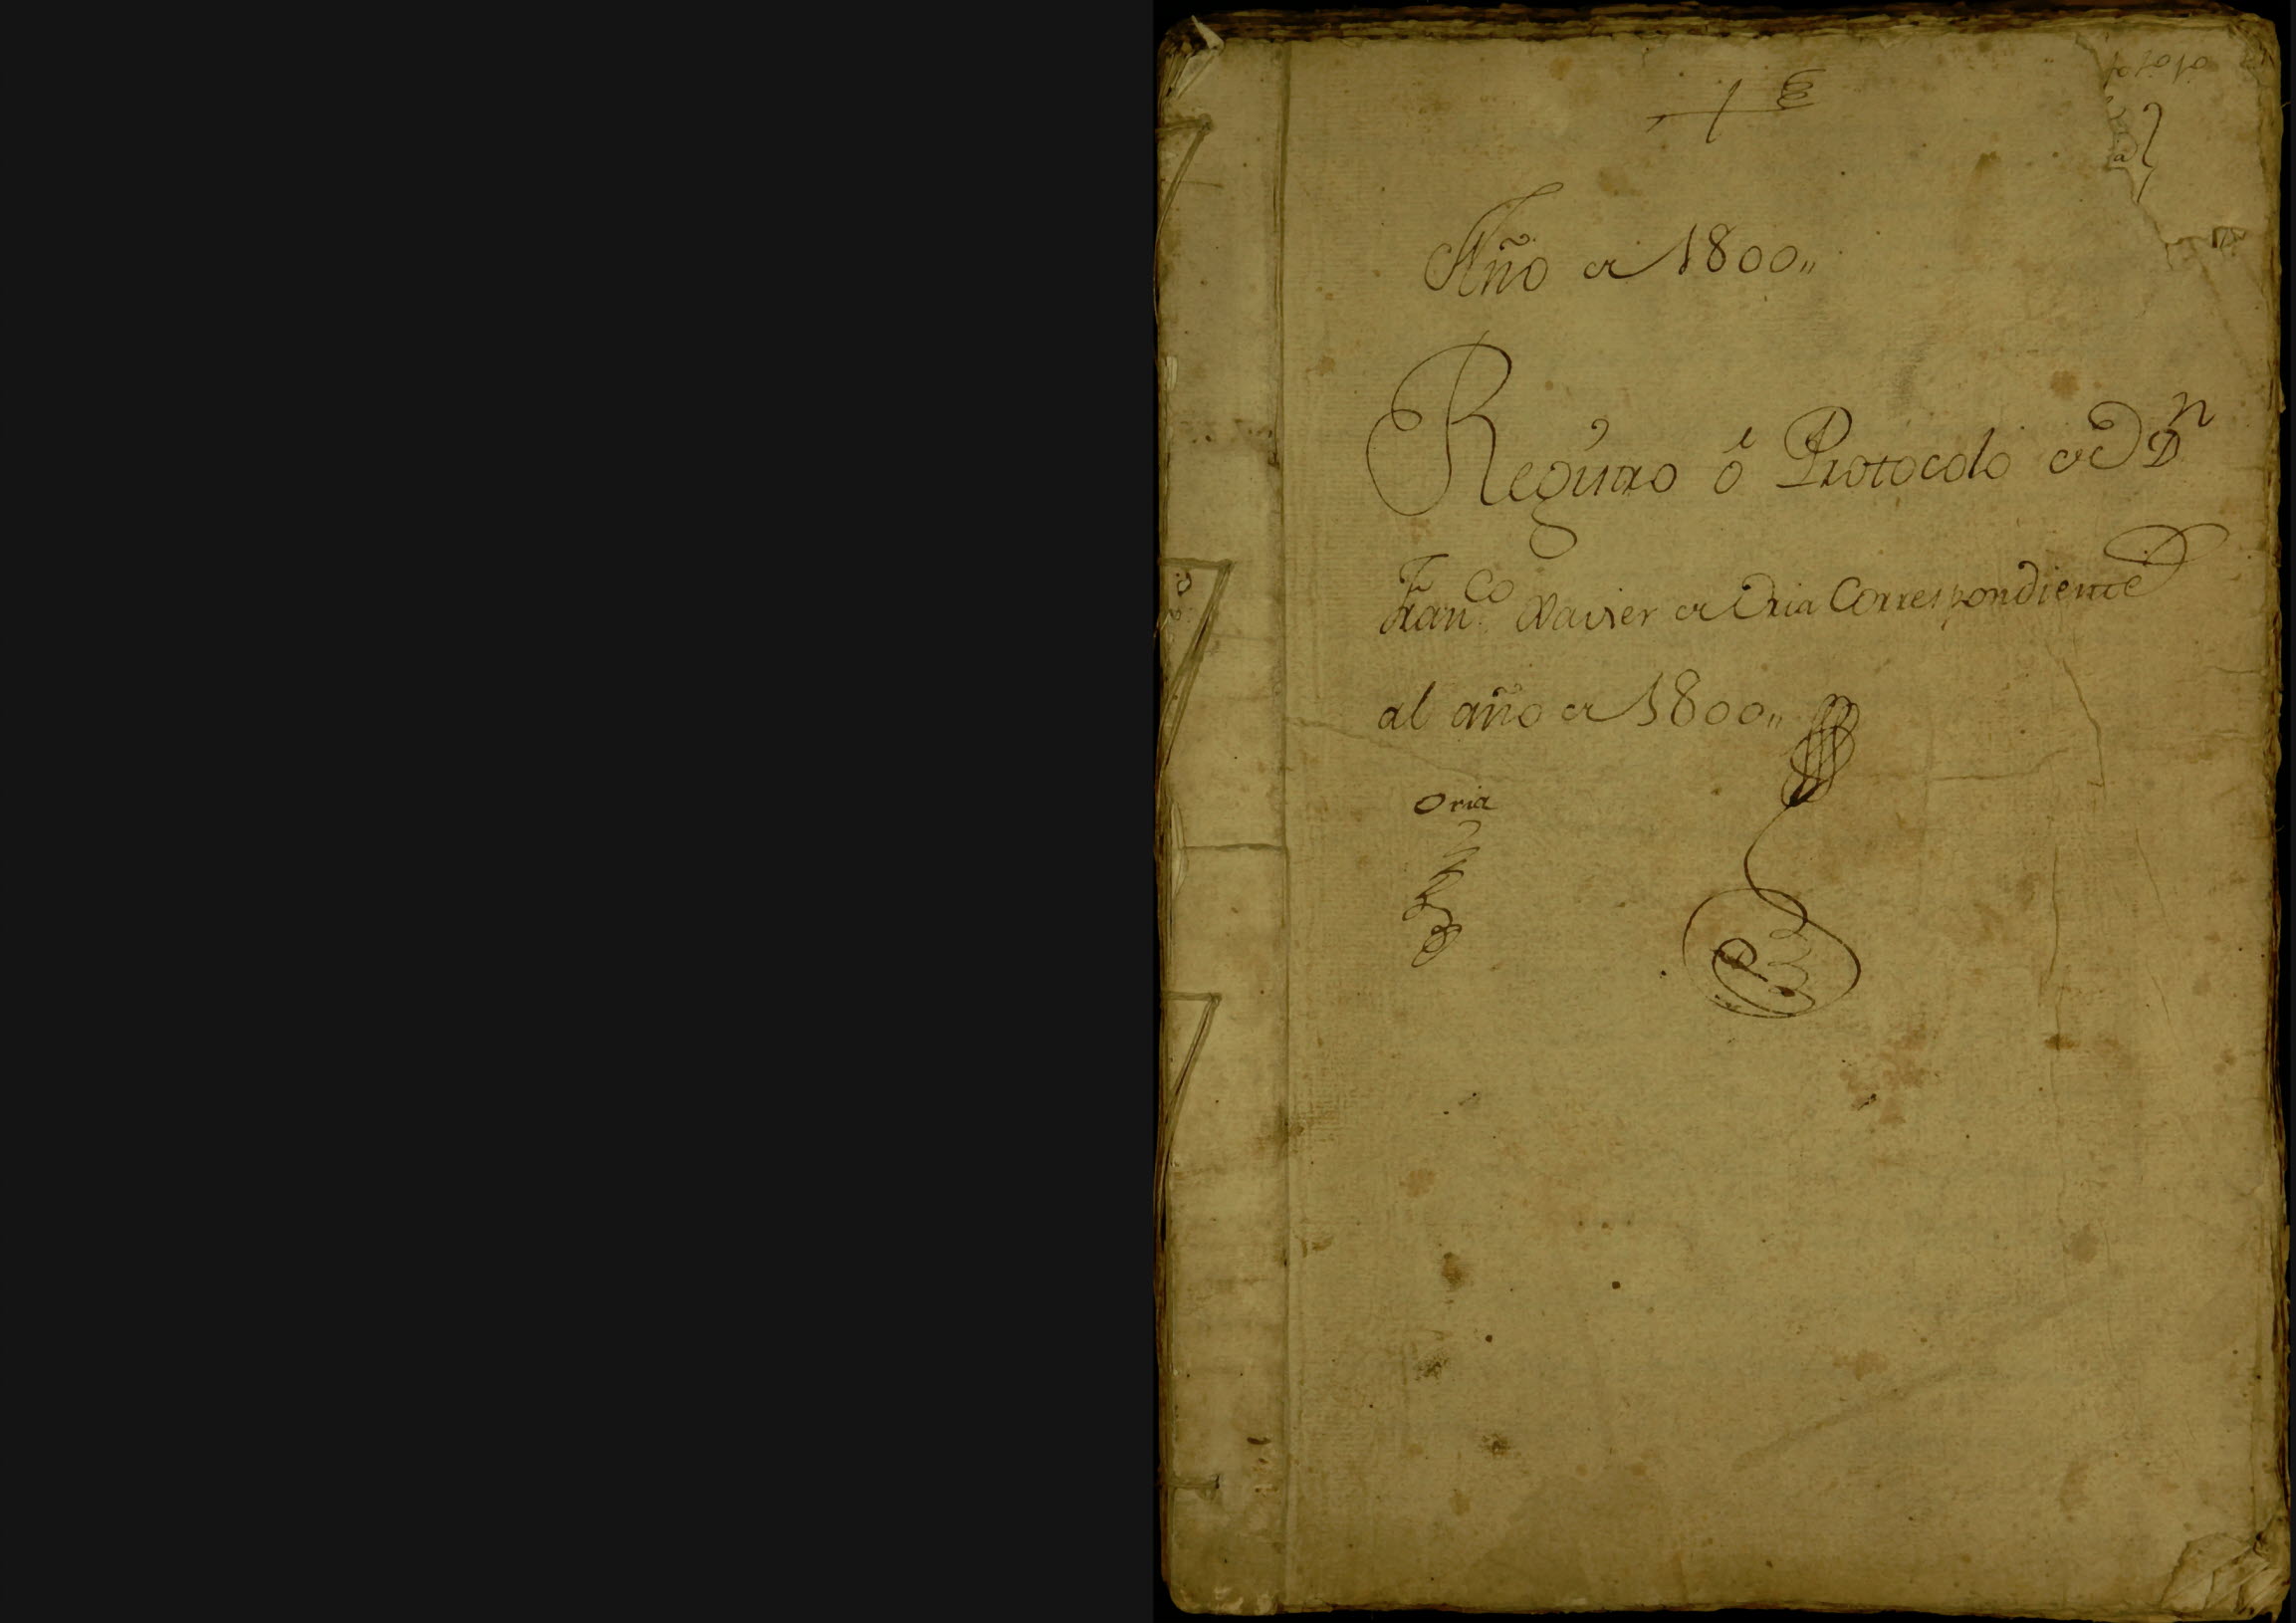 Año de 1800,,
Registro ô Protocolo de Dn
Franco. Xavier de Oria Correspondiente
al año de 1800,,
Oria